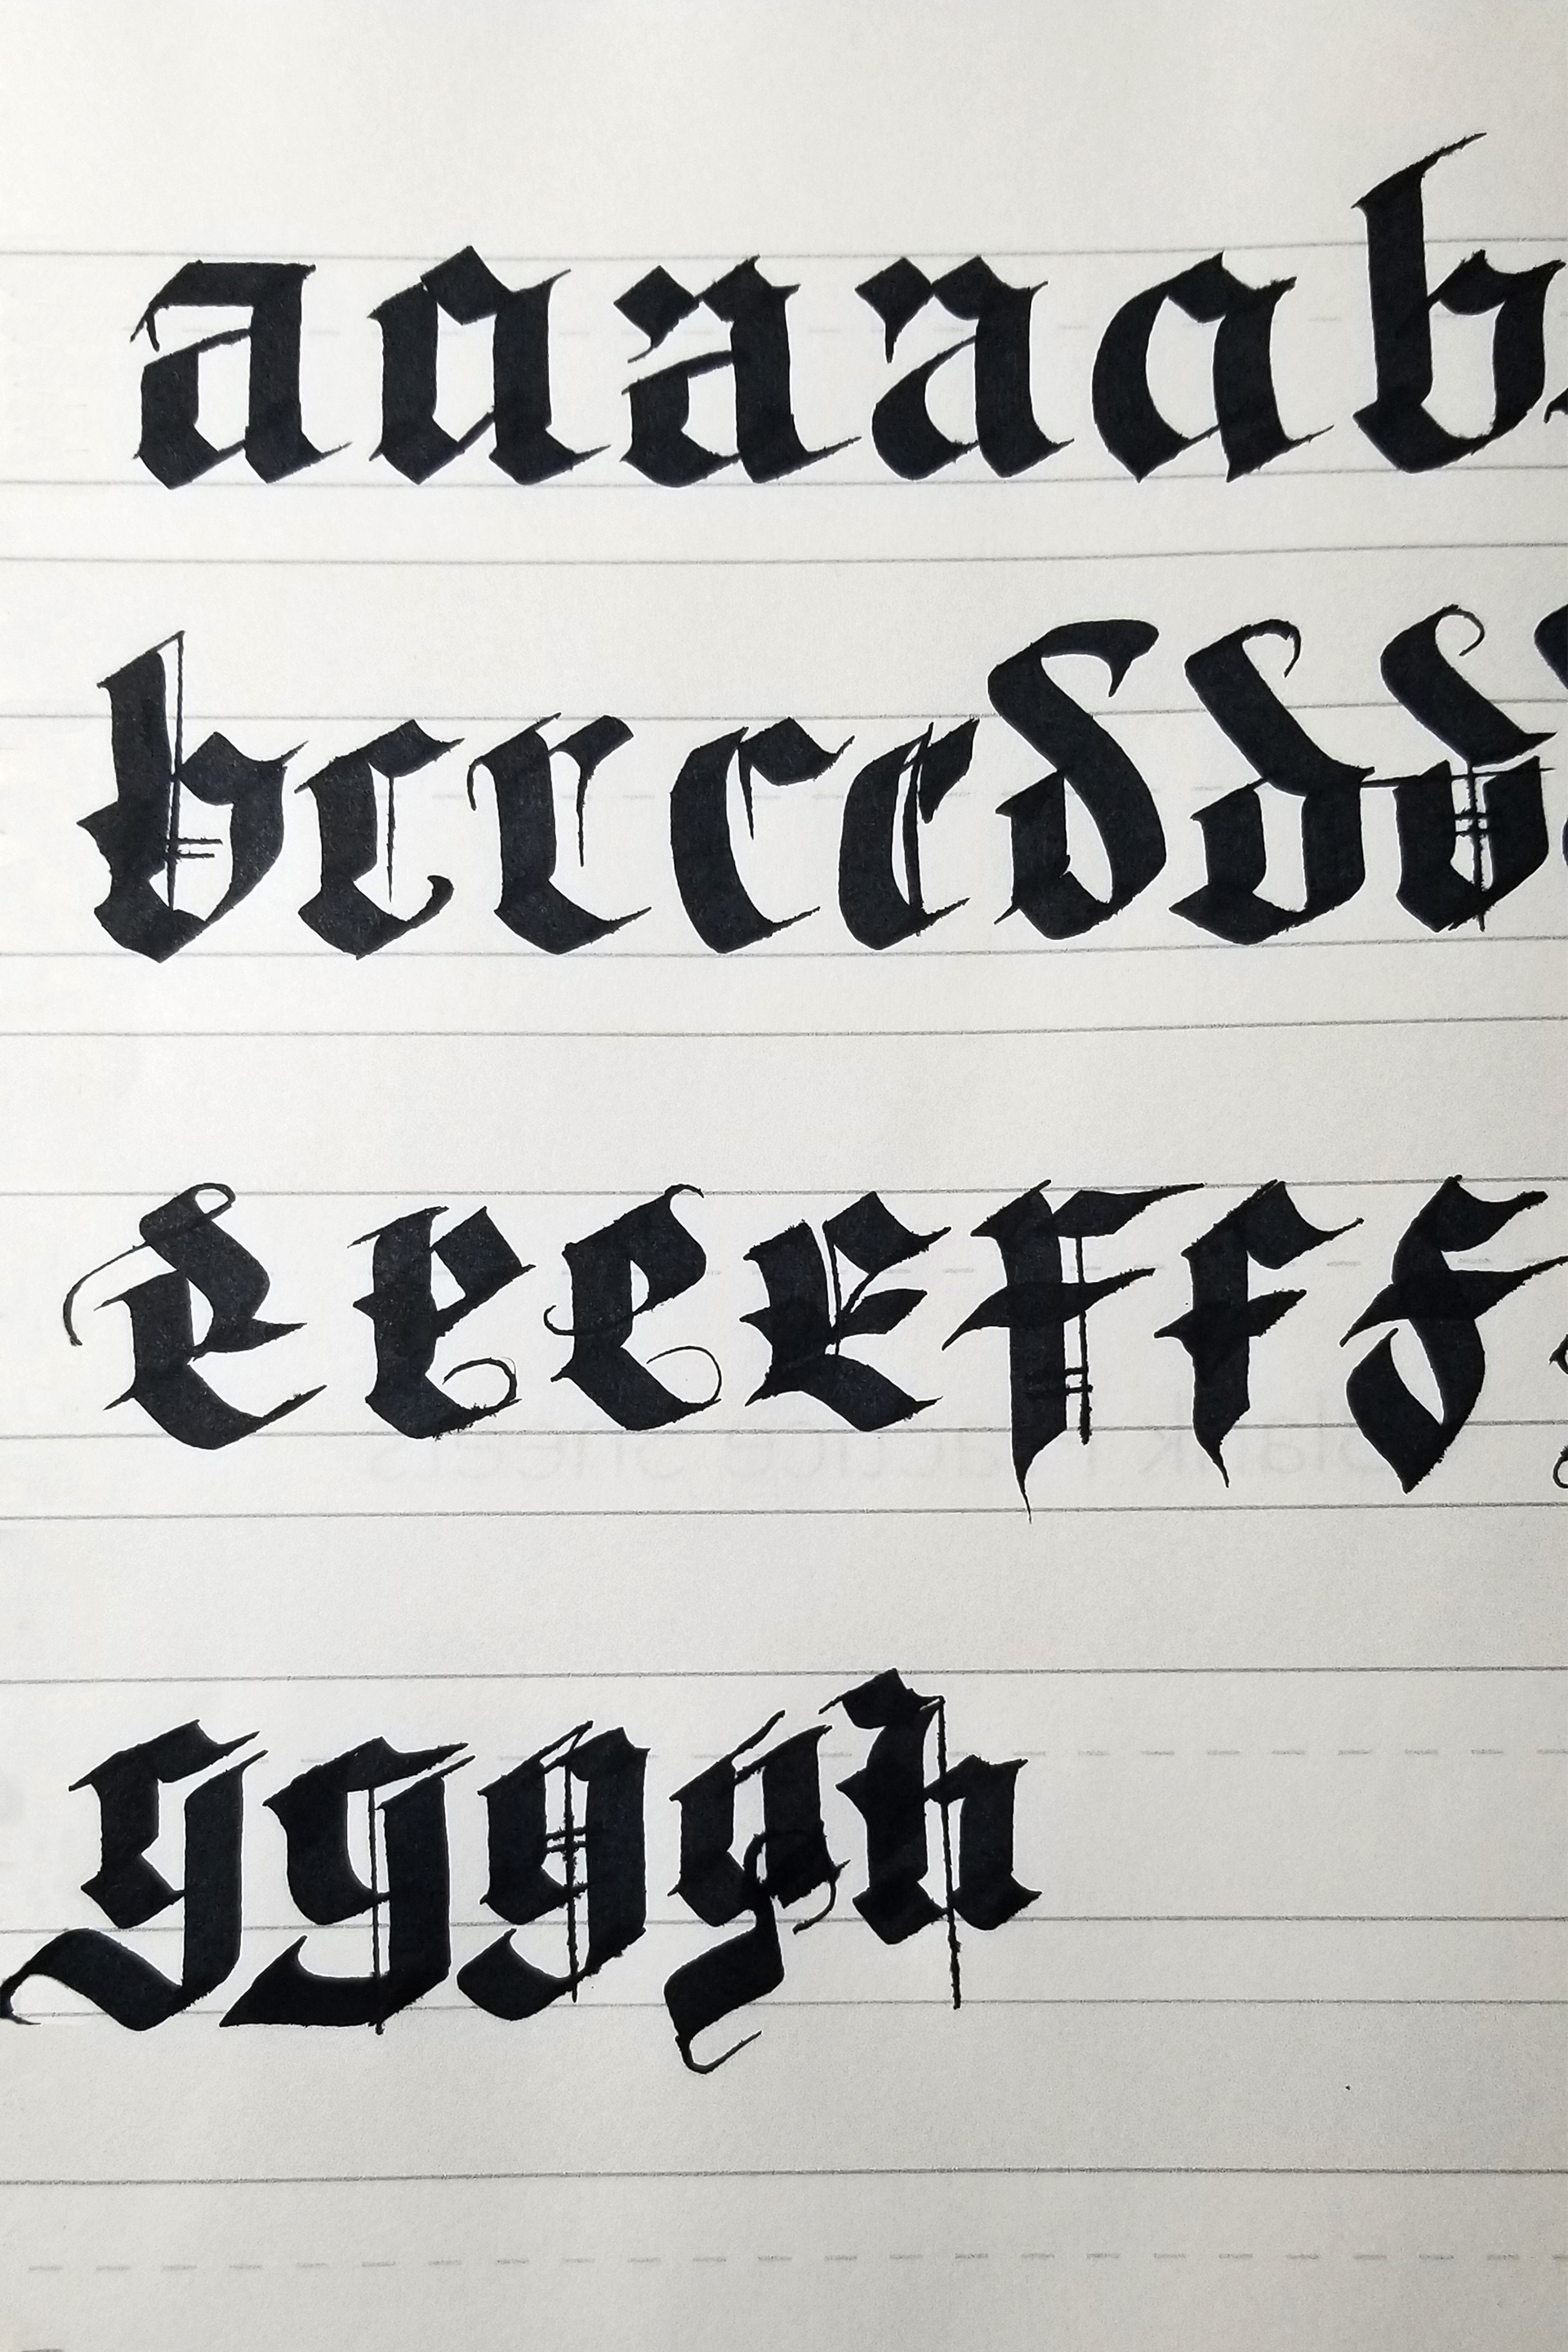 aaaaab
bccccddd
eeeefff
ggggh